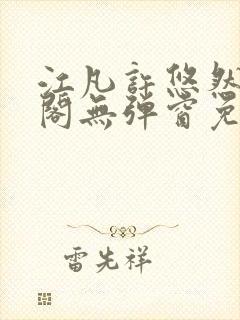 江凡許悠然
閣無彈窗免
雷先祥